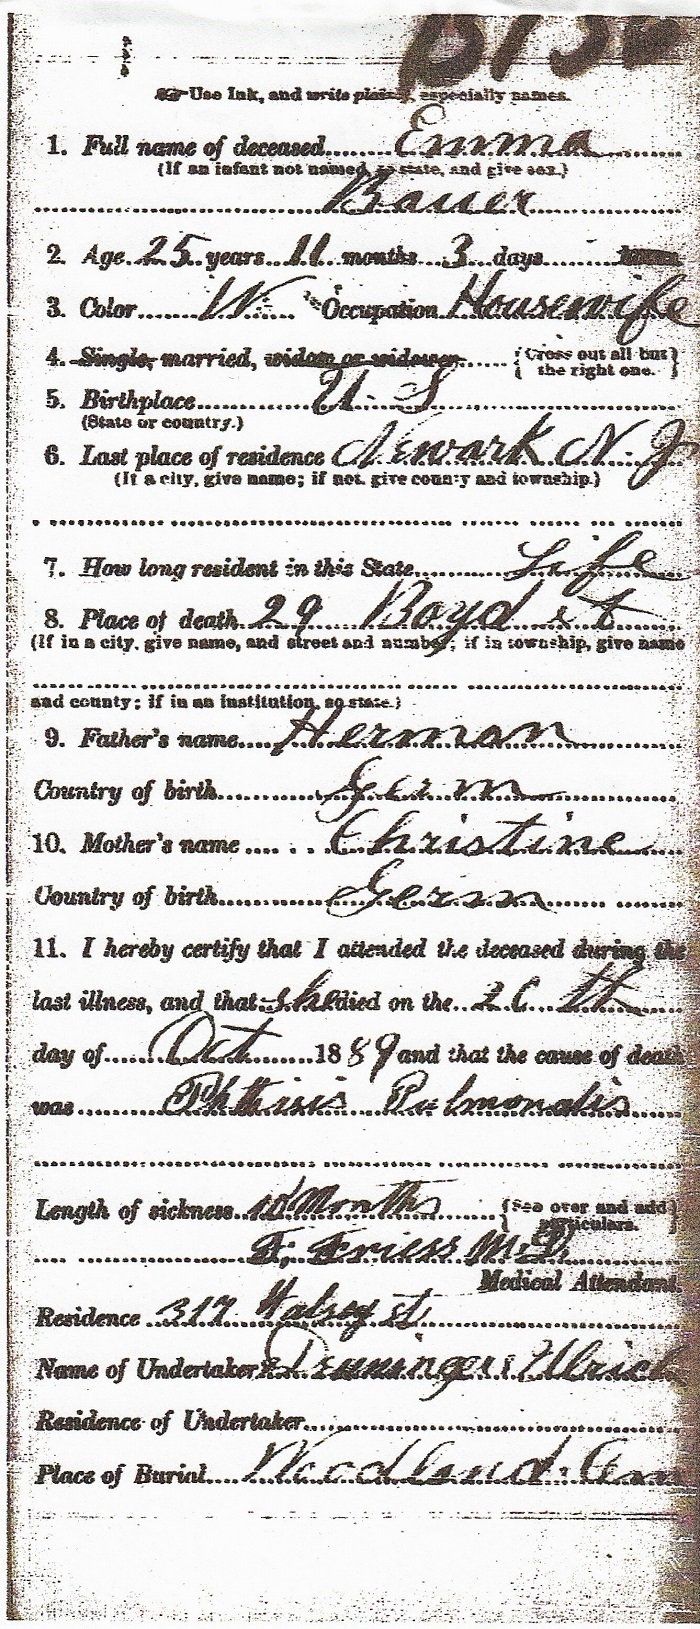 Use Ink, and write plainly, especially names.
1. Full name of deceased Emma
(If an infant not named, so state, and give sex.)
Bauer
2. Age 25 years 11 months 3 days hours
3. Color W. Occupation Housewife
4. Single, married, widow or widower. {Cross out all but the right one.}
5. Birthplace U. S
(State or country.)
6. Last place of residence Newark N. J
(If a city, give name; if not, give county and township.)
7. How long resident in this State Life
8. Place of death 29 Boyd st
(If in a city, give name, and street and number; if in township, give name
and county; if in an institution, so state.)
9. Father's name Herman
Country of birth Germ
10. Mother's name Christine
Country of birth Germ
11. I hereby certify that I attended the deceased during the
last illness, and that she died on the 26 th
day of Oct 1889 and that the cause of death
was Phthisis Pulmonalis
Length of sickness 10 Months {See over and add particulars.}
F. Friess M.D.
Medical Attendant.
Residence 317 Halsey st
Name of Undertaker Ulrich
Residence of Undertaker
Place of Burial Woodland. Cem